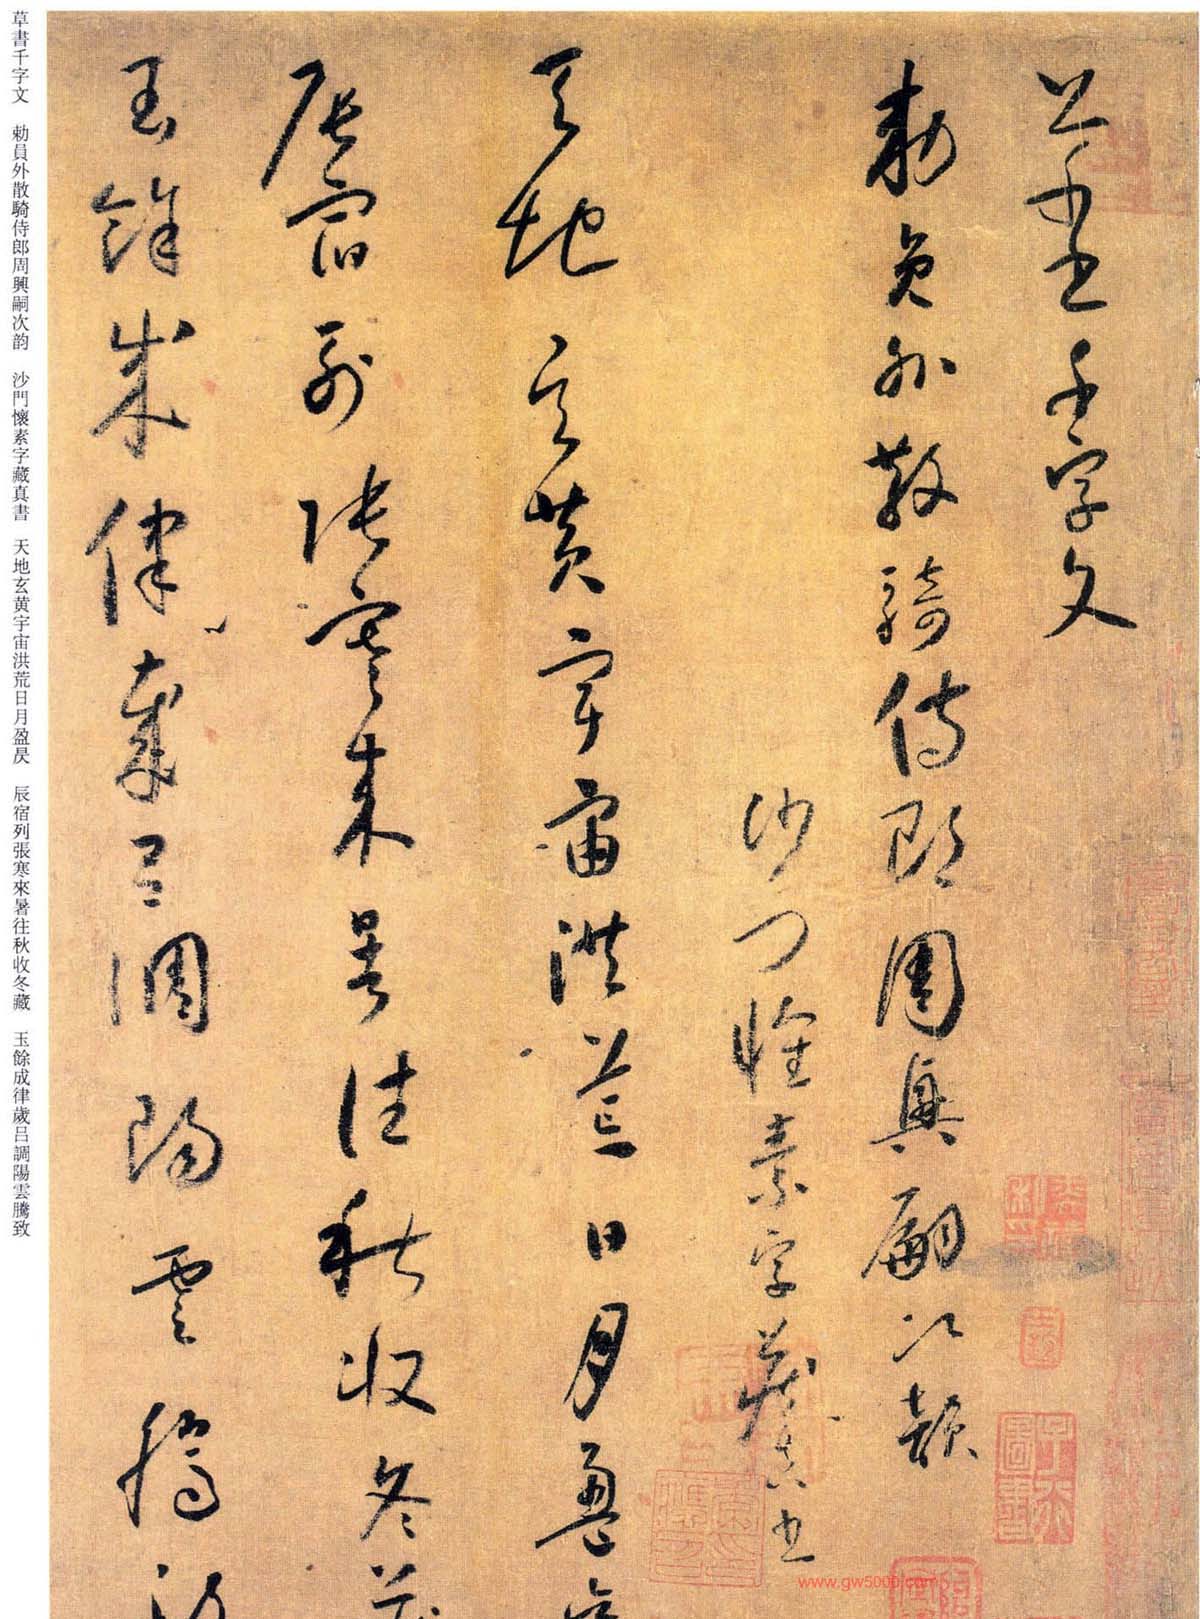 草書千字文
勅員外散騎侍郎周興嗣次韻
沙門懷素字藏真書
天地玄黄宇宙洪荒日月盈昃
辰宿列張寒來暑往秋收冬藏
玉餘成律歲呂調陽雲騰致
草書千字文 勅員外散騎侍郎周興嗣次韵 沙門懷素字藏真書 天地玄黄宇宙洪荒日月盈昃 辰宿列張寒來暑往秋收冬藏 玉餘成律歲呂調陽雲騰致
www.gw5000.com